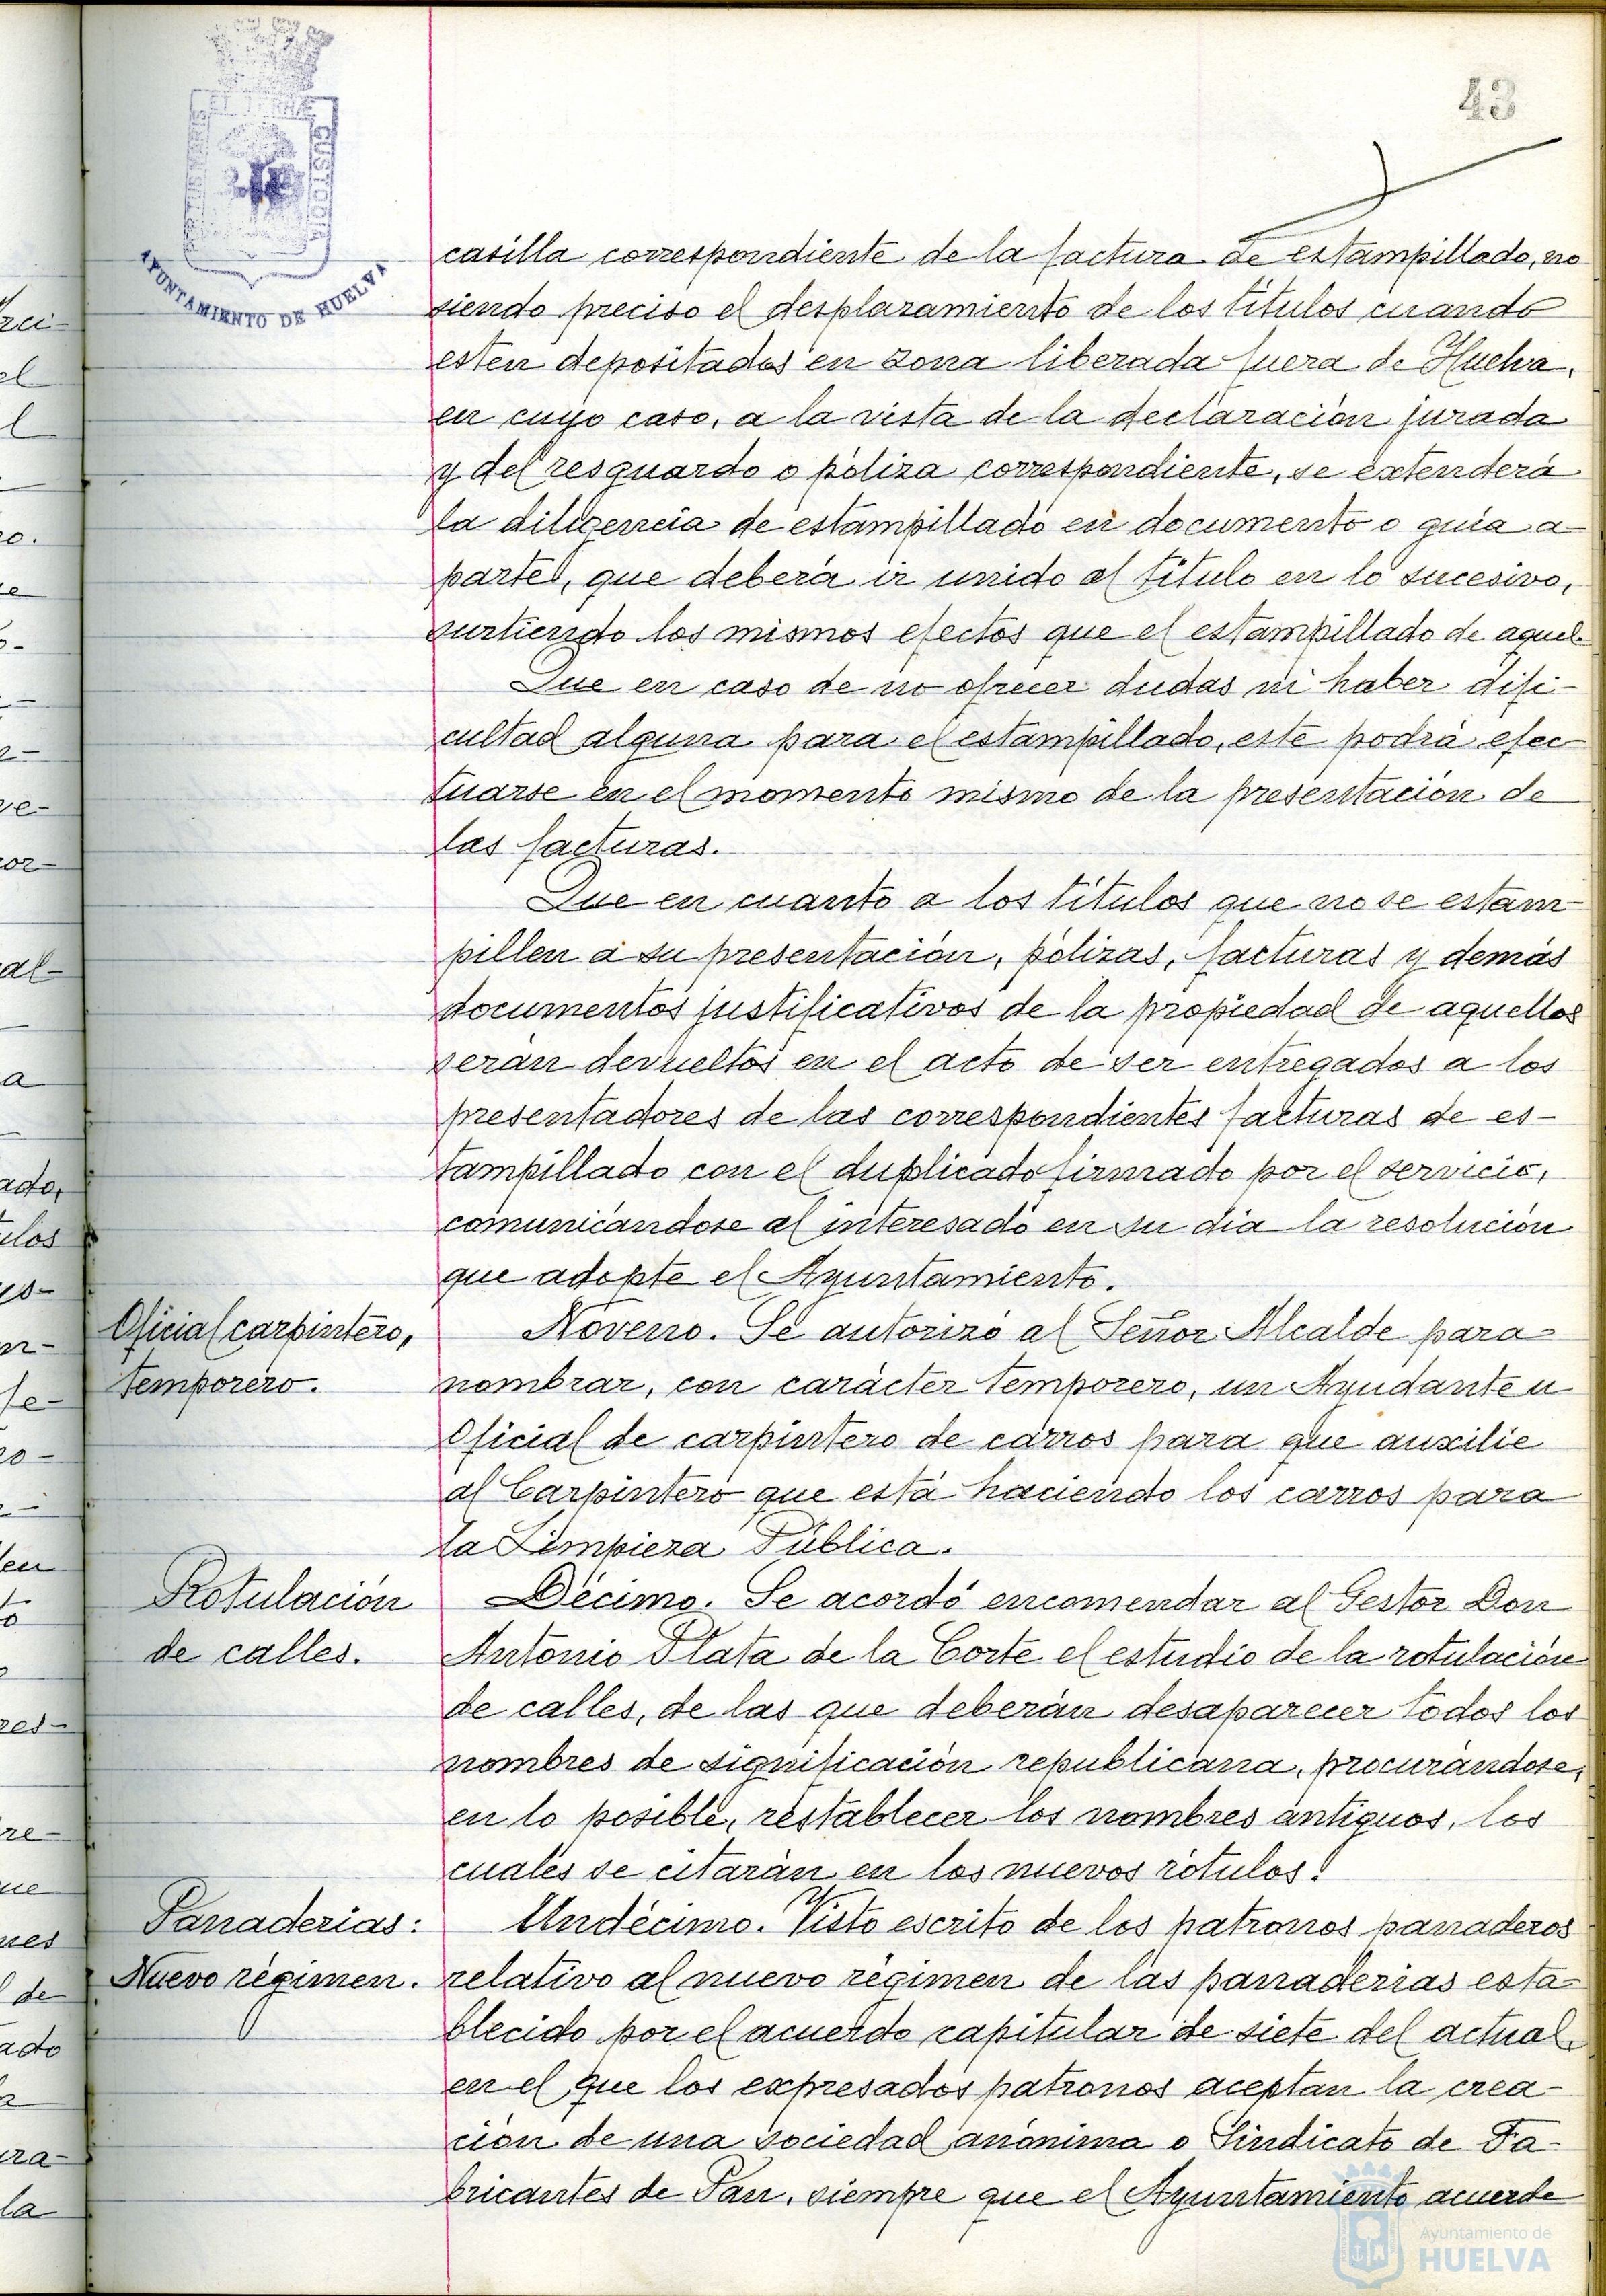 43
PORTUS MARIS
ET TERRAE
CUSTODIA
AYUNTAMIENTO DE HUELVA
casilla correspondiente de la factura de estampillado, no
siendo preciso el desplazamiento de los titulos cuando
esten depositados en zona liberada fuera de Huelva,
en cuyo caso, a la vista de la declaración jurada
y del resguardo o póliza correspondiente, se extenderá
la diligencia de estampillado en documento o guia a-
parte, que deberá ir unido al título en lo sucesivo,
surtiendo los mismos efectos que el estampillado de aquel.
Que en caso de no ofrecer dudas ni haber difi-
cultad alguna para el estampillado, este podrá efec-
tuarse en el momento mismo de la presentación de
las facturas.
Que en cuanto a los titulos que no se estam-
pillen a su presentación, pólizas, facturas y demás
documentos justificativos de la propiedad de aquellos
serán devueltos en el acto de ser entregados a los
presentadores de las correspondientes facturas de es-
tampillado con el duplicado firmado por el servicio,
comunicándose al interesado en su dia la resolución
que adopte el Ayuntamiento.
Oficial carpintero,
temporero.
Noveno. Se autorizó al Señor Alcalde para
nombrar, con carácter temporero, un Ayudante u
Oficial de carpintero de carros para que auxilie
al Carpintero que está haciendo los carros para
la Limpieza Pública.
Rotulación
de calles.
Décimo. Se acordó encomendar al Gestor Don
Antonio Plata de la Corte el estudio de la rotulación
de calles, de las que deberán desaparecer todos los
nombres de significación republicana, procurándose,
en lo posible, restablecer los nombres antiguos, los
cuales se citarán en los nuevos rótulos.
Panaderias:
Nuevo régimen.
Undécimo. Visto escrito de los patronos panaderos
relativo al nuevo régimen de las panaderias esta-
blecido por el acuerdo capitular de siete del actual
en el que los expresados patronos aceptan la crea-
ción de una sociedad anónima o Sindicato de Fa-
bricantes de Pan, siempre que el Ayuntamiento acuerde
Ayuntamiento de
HUELVA